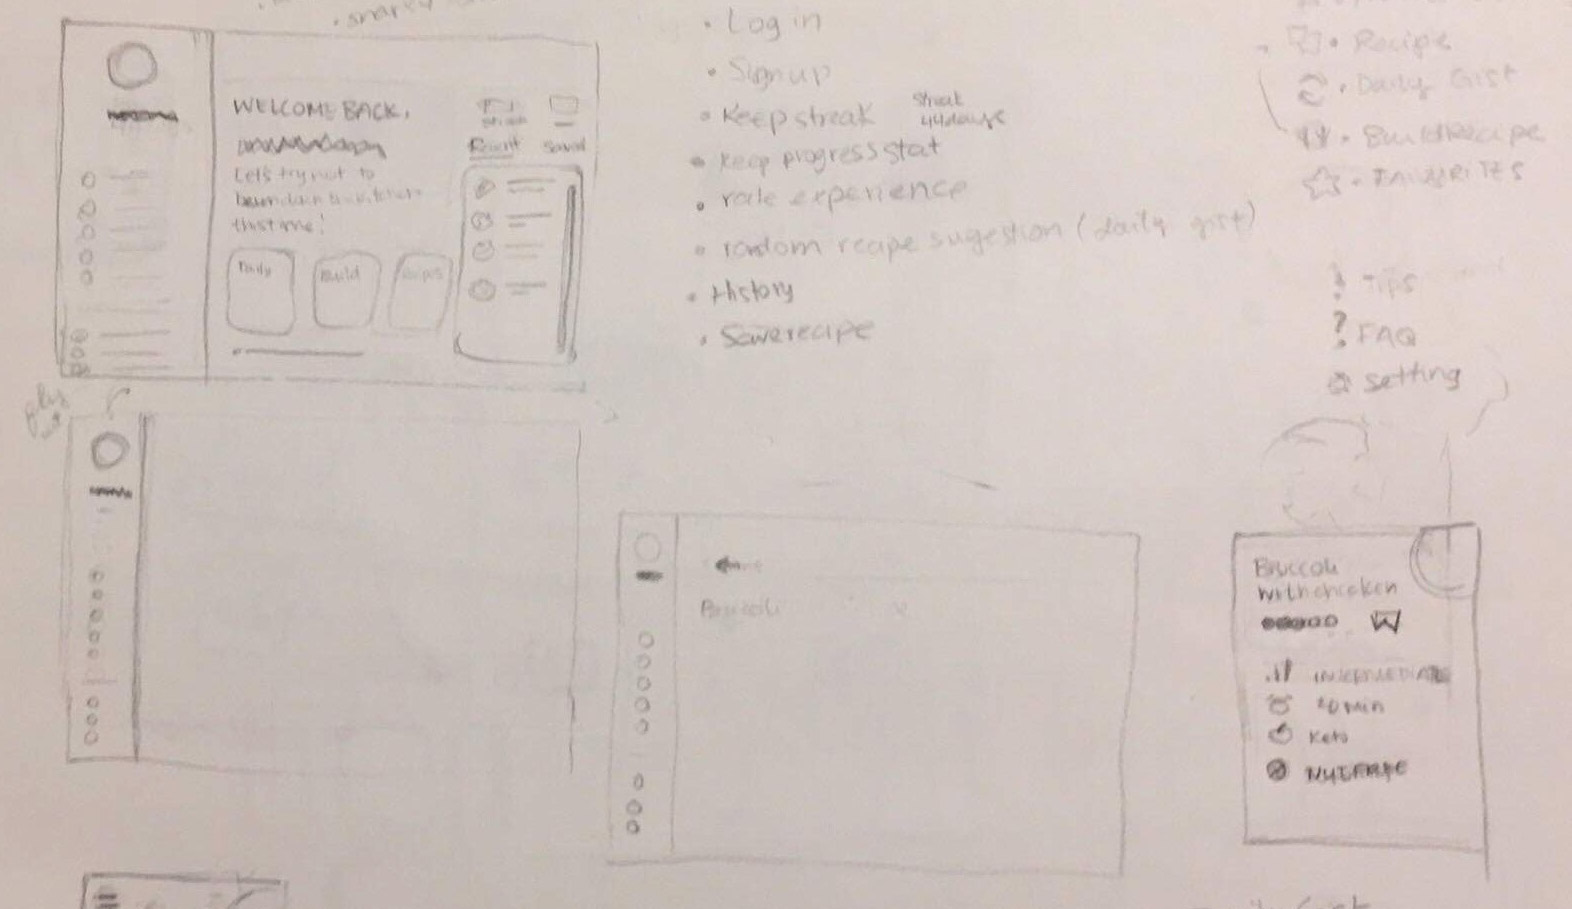 snarky
WELCOME BACK,
Let's try not to
burn down the kitchen
this time!
Recent Saved
Daily Build Recipes
• Log in
• Sign up
• Keep streak
Streak
44 days
• keep progress stat
• rate experience
• random recape sugestion (daily gist)
• History
• Save recipe
• Recipe
• Daily Gist
• Build Recipe
• FAVORITES
! Tips
? FAQ
Setting
Broccoli
Broccoli
with chicken
INTERMEDIATE
20 min
Keto
NUT FREE